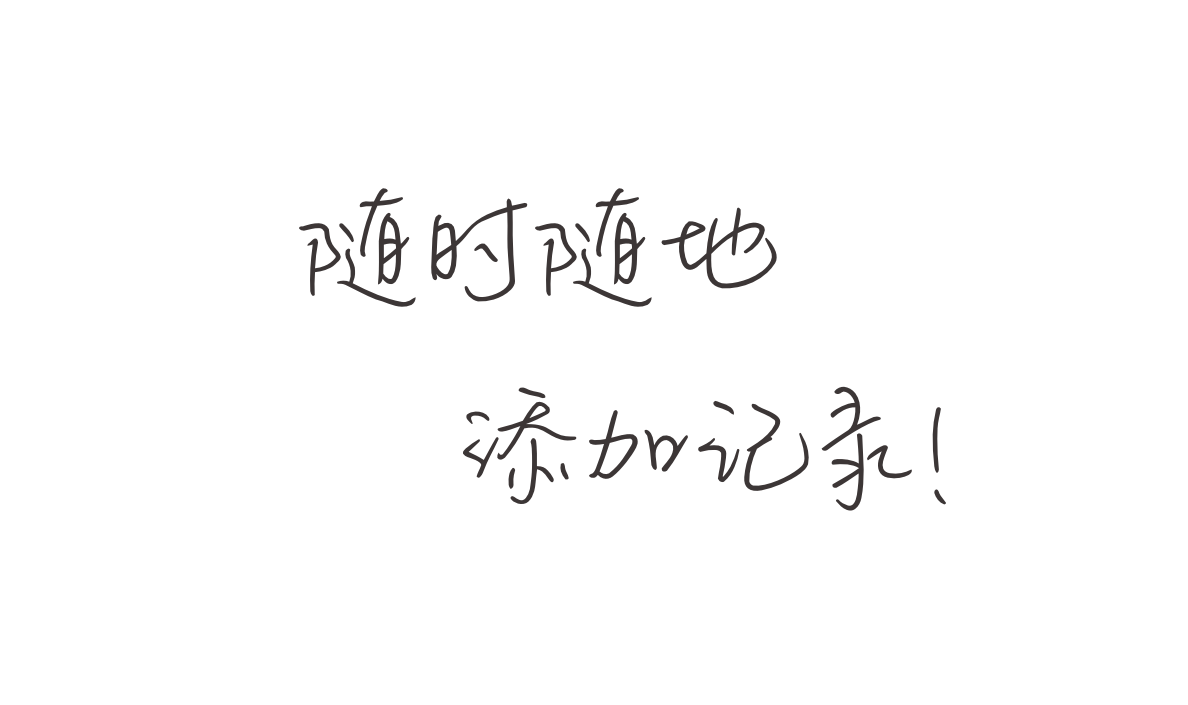 随时随地
添加记录!